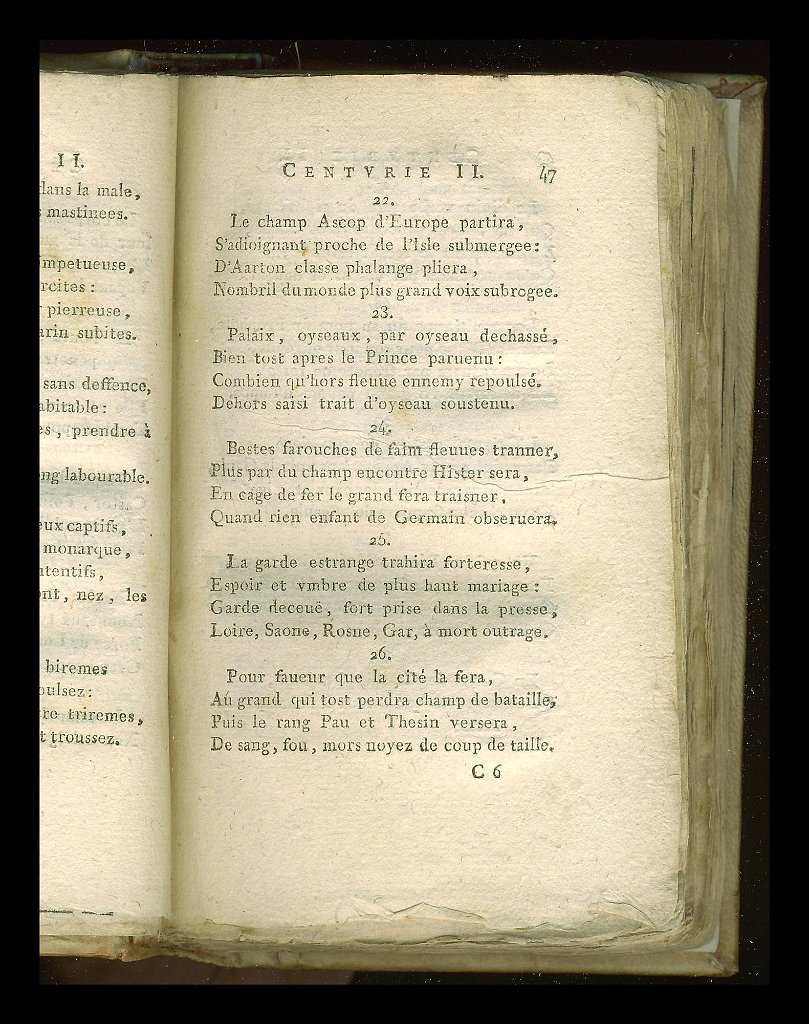 II.
dans la male,
mastinees.
mpetueuse,
rcites :
pierreuse,
arin subites.
sans deffence,
abitable :
es, prendre à
ng labourable.
eux captifs,
monarque,
ntentifs,
ont, nez, les
biremes
oulsez :
re triremes,
t troussez.
CENTVRIE II. 47
22.
Le champ Ascop d'Europe partira,
S'adioignant proche de l'Isle submergee :
D'Aarton classe phalange pliera,
Nombril du monde plus grand voix subrogee.
23.
Palaix, oyseaux, par oyseau dechassé,
Bien tost apres le Prince paruenu :
Combien qu'hors fleuue ennemy repoulsé.
Dehors saisi trait d'oyseau soustenu.
24.
Bestes farouches de faim fleuues tranner,
Plus par du champ encontre Hister sera,
En cage de fer le grand fera traisner,
Quand rien enfant de Germain obseruera.
25.
La garde estrange trahira forteresse,
Espoir et vmbre de plus haut mariage :
Garde deceuë, fort prise dans la presse,
Loire, Saone, Rosne, Gar, à mort outrage.
26.
Pour faueur que la cité la fera,
Au grand qui tost perdra champ de bataille,
Puis le rang Pau et Thesin versera,
De sang, fou, mors noyez de coup de taille.
C 6